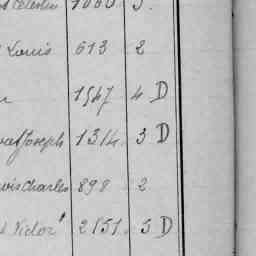 Célestin 1060 3.
Louis 613 2
1547 4 D
Joseph 1314 3 D
Charles 898 2
Victor 2151 3 D